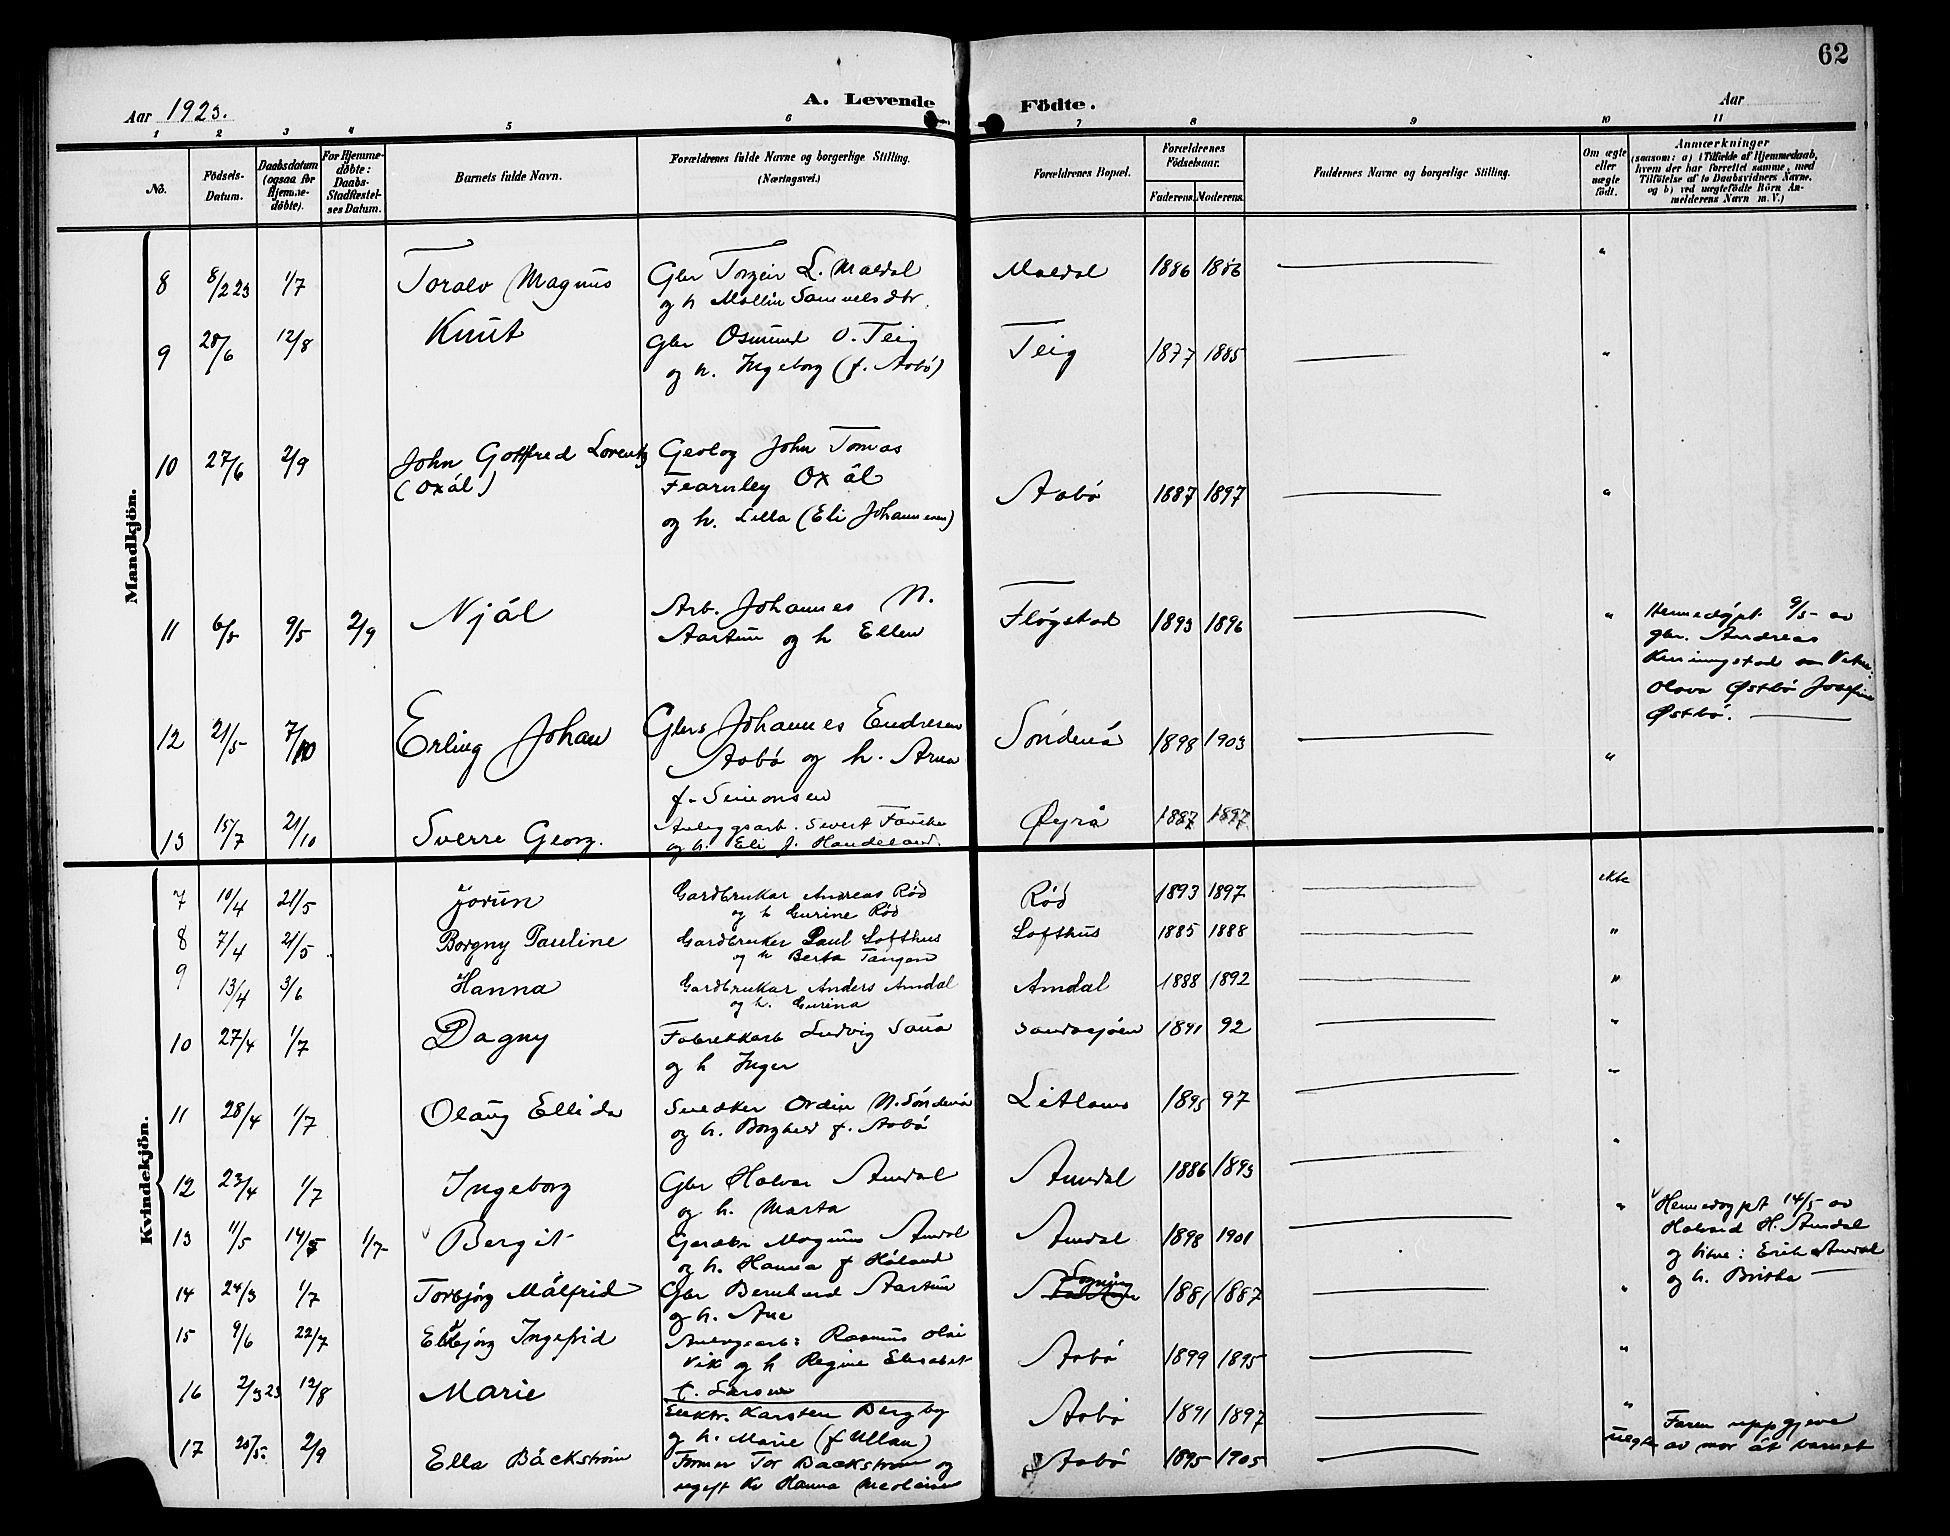 62
Aar 1923.
A. Levende Födte.
Aar
1 2 3 4 5 6 7 8 9 10 11
No.
Födsels-
Datum.
Daabsdatum
(ogsaa for
Hjemme-
döbte).
For Hjemme-
döbte:
Daabs-
Stadfæstel-
ses Datum.
Barnets fulde Navn.
Forældrenes fulde Navne og borgerlige Stilling.
(Næringsvei.)
Forældrenes Bopæl.
Forældrenes
Födselsaar.
Faderens. Moderens.
Faddernes Navne og borgerlige Stilling.
Om ægte
eller
uægte
født.
Anmærkninger
(saasom: a) i Tilfælde af Hjemmedaab,
hvem der har forrettet samme, med
Tilföielse af to Daabsvidners Navne,
og b) ved uægtefödte Börn An-
melderens Navn m. V.)
Mandkjön.
8 8/2 23 1/7 Toralv Magnus Gbr Torgeir L. Maldal Maldal 1886 1886 "
og h Mallin Samuelsdtr.
9 28/6 12/8 Knut Gbr Osmund O. Teig Teig 1877 1885 "
og h. Ingeborg (f. Aabö)
10 27/6 2/9 John Gottfred Lorentz Geolog John Tomas
(Oxál) Fearnley Oxál Aabö 1887 1897 "
og h. Lilla (Eli Johannesen)
11 6/5 9/5 2/9 Njál Arb. Johannes N. Flögstad 1893 1896 " Hemedöypt 9/5 av
Aartun og h Ellen gbr. Andreas
Olava Østbö Josefine
Østbö.
12 21/5 7/10 Erling Johan Gbrs Johannes Endresen Söndenå 1898 1903 "
Aabö og h. Arna
f. Simonsen
13 15/7 21/10 Sverre Georg. Anleggsarb. Sivert Øyrå 1887 1897
og h. Eli f. Handeland.
Kvindekjön.
7 10/4 21/5 Jorun Gardbrukar Andreas Rød Rød 1893 1897 ekte
og h Gurine Rød
8 7/4 21/5 Borgny Pauline Gardbruker Paul Lofthus Lofthus 1885 1888 "
og h Berta Tangen
9 13/4 3/6 Hanna Gardbrukar Anders Amdal Amdal 1888 1892 "
og h. Gurina
10 27/4 1/7 Dagny Fabrikkarb Ludvig Sana 1891 92 "
og h Inger
11 28/4 1/7 Olaug Ellida Snedker Ordin N. Söndenå 1895 97 "
og h. Borghild f. Aabö
12 23/4 1/7 Ingeborg Gbr Halvar Amdal Amdal 1886 1893 "
og h. Marta
13 1/5 14/5 1/7 Bergit Gardbr Magnus Amdal Amdal 1898 1901 " Hemedöypt 14/5 av
og h. Hanna f Höland Halvard H. Amdal
og vitne: Erik Amdal
og h. Britha
14 24/3 1/7 Torbjörg Målfrid Gbr Bernhard Aartun 1881 1887 "
og h. Ane
15 9/6 22/7 Elbjörg Ingefrid Anlegsarb: Rasmus Olai Aabö 1899 1895 "
Vik og h Regine Elisabet
f. Larsen
16 2/3 23 12/8 Marie Elektr. Karsten Bergby Aabö 1891 1897 "
og h. Marie (f Ullan)
17 20/5 2/9 Ella Bäckström Former Tor Backström og Aabö 1895 1905 uegte Faren uppgjeve
ugift Kv Hanna Nicolaisen av mor åt barnet